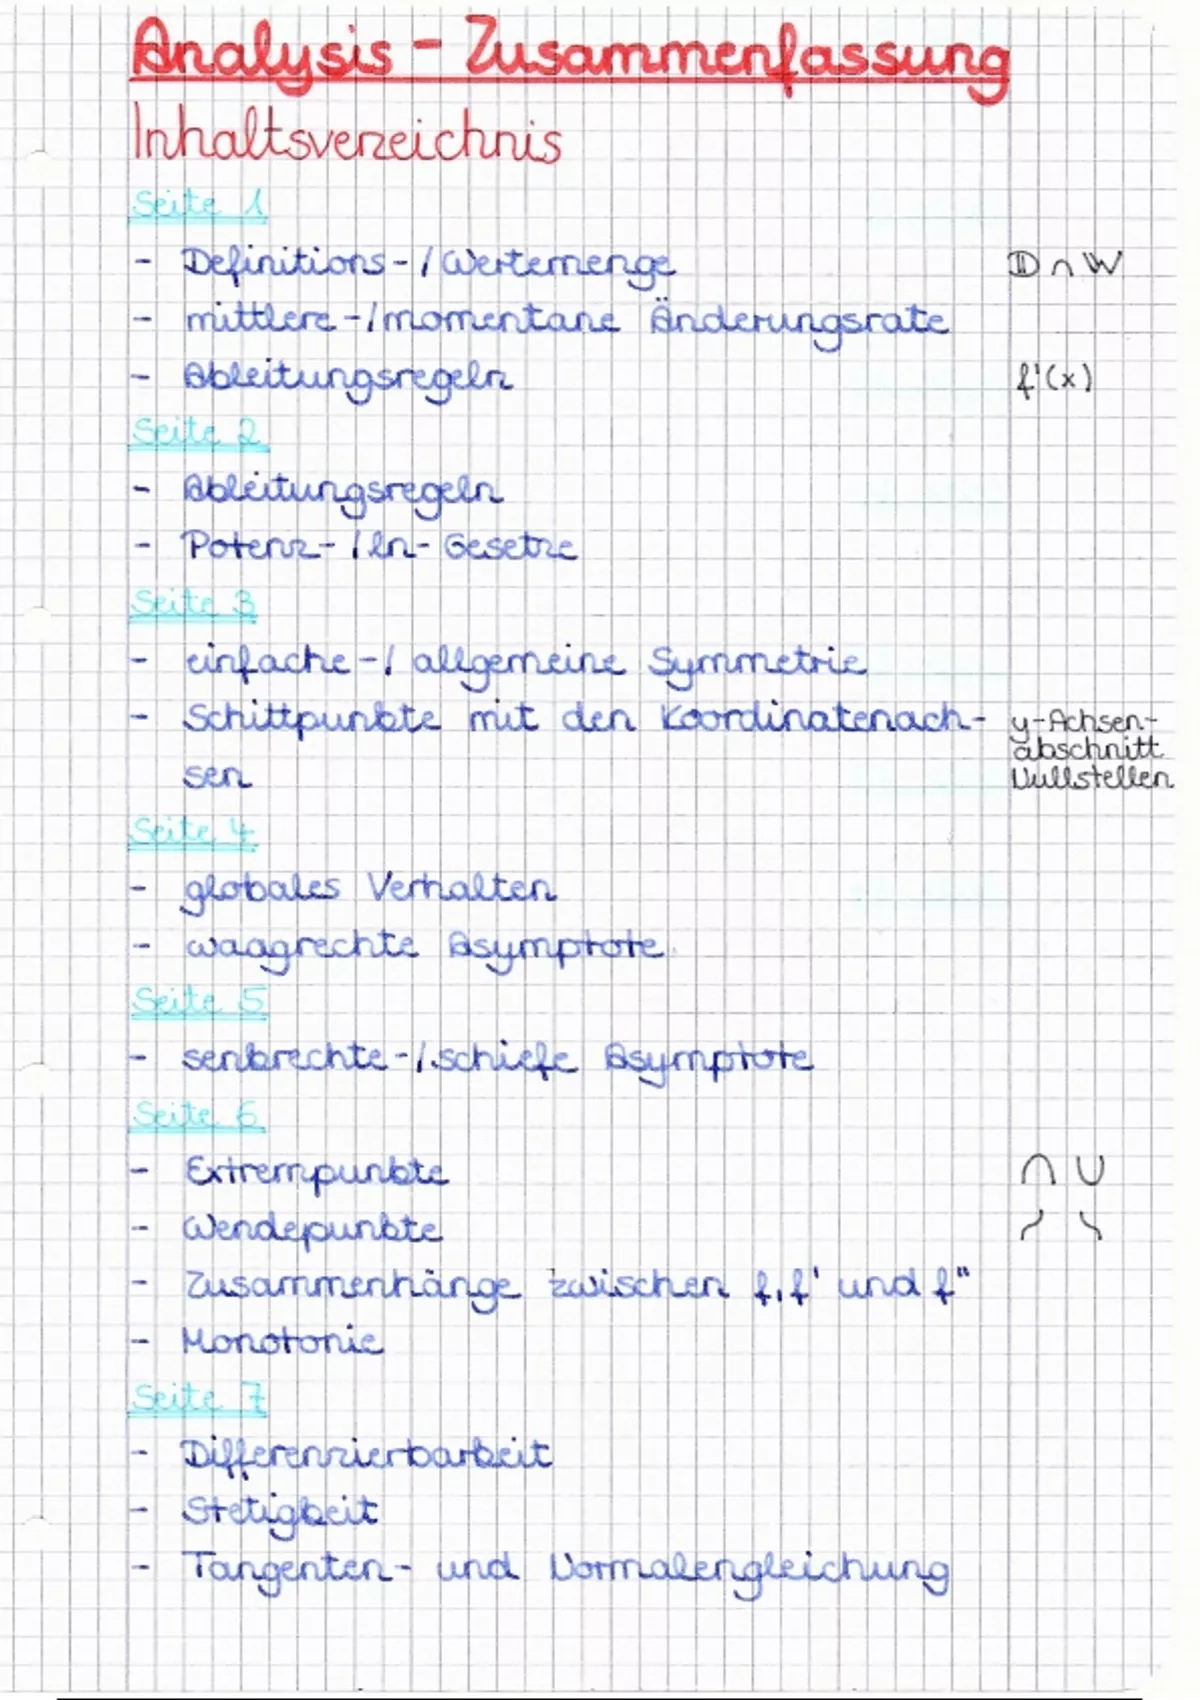 Analysis - Zusammenfassung
Inhaltsverzeichnis
Seite 1
- Definitions-/Wertemenge 𝔻 ∩ 𝕎
- mittlere-/momentane Änderungsrate
- Ableitungsregeln f'(x)
Seite 2
- Ableitungsregeln
- Potenz-/ln-Gesetze
Seite 3
- einfache-/allgemeine Symmetrie
- Schittpunkte mit den Koordinatenach- y-Achsen-
abschnitt
sen Nullstellen
Seite 4
- globales Verhalten
- waagrechte Asymptote
Seite 5
- senkrechte-/schiefe Asymptote
Seite 6
- Extrempunkte ∩ ∪
- Wendepunkte
- Zusammenhänge zwischen f, f' und f"
- Monotonie
Seite 7
- Differenzierbarkeit
- Stetigkeit
- Tangenten- und Normalengleichung